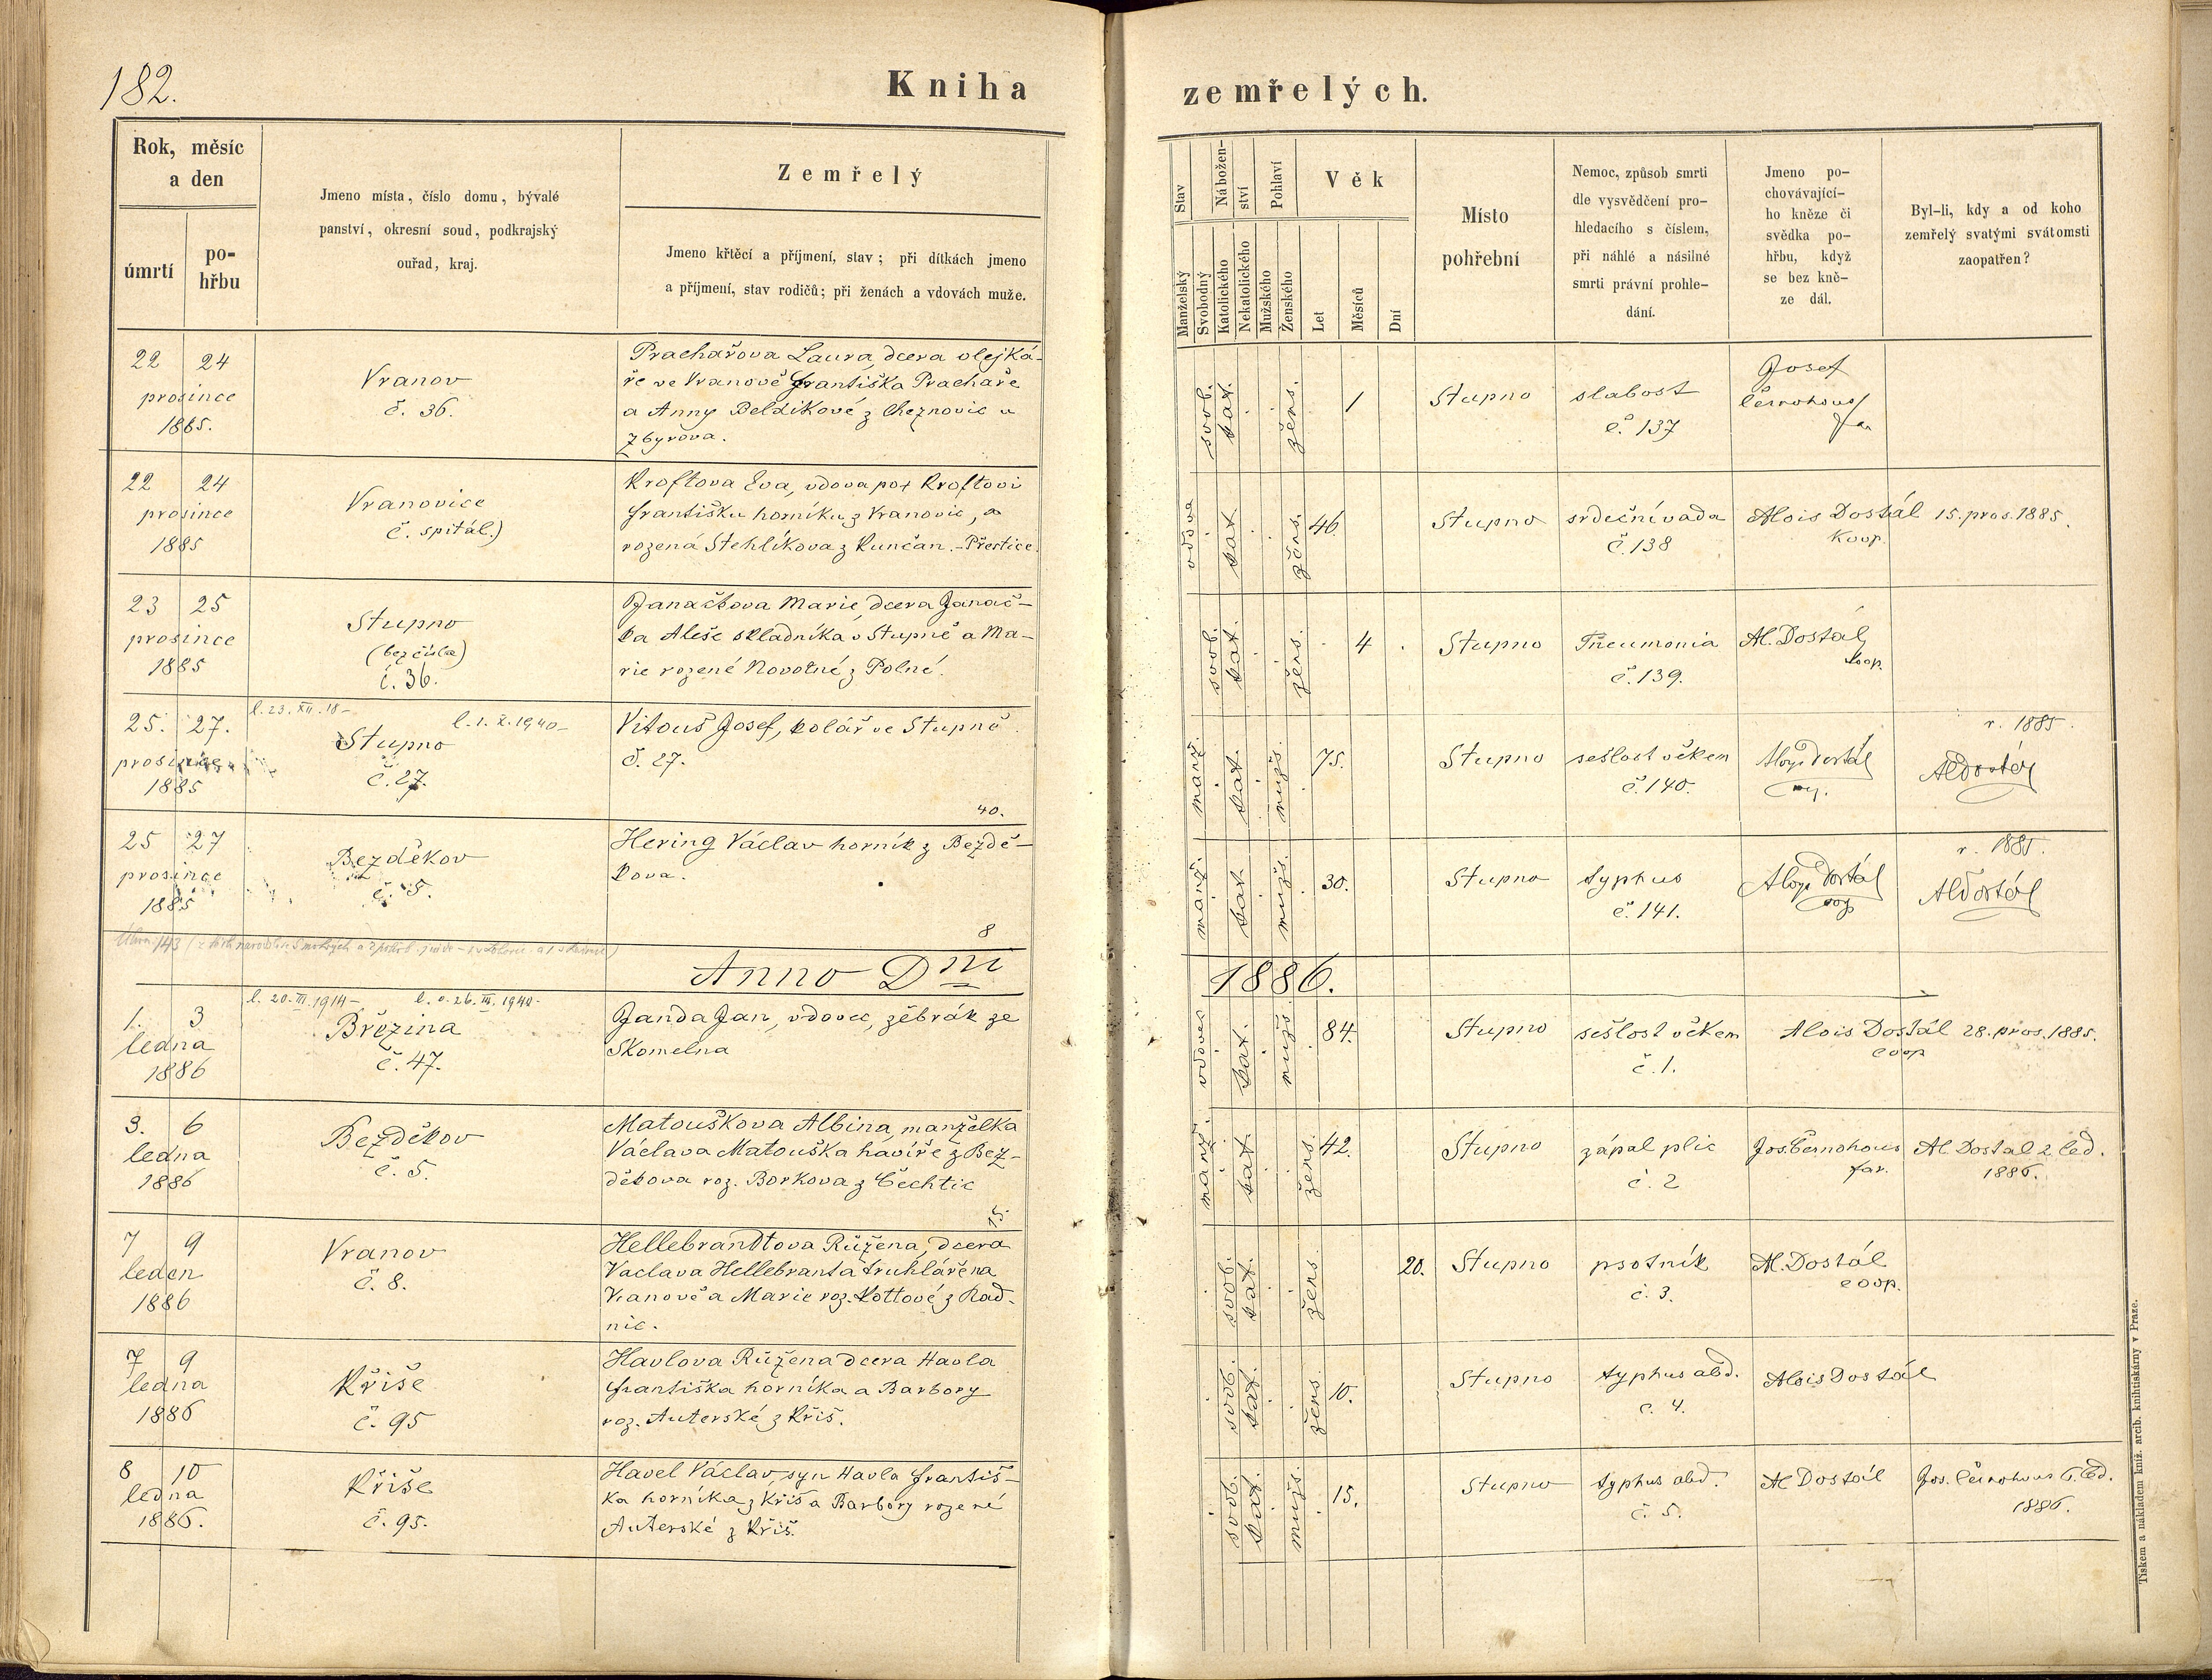 182.
Kniha
zemřelých.
Rok, měsíc
a den
úmrtí
po-
hřbu
Jmeno místa, číslo domu, bývalé
panství, okresní soud, podkrajský
ouřad, kraj.
Zemřelý
Jmeno křtěcí a příjmení, stav; při dítkách jmeno
a příjmení, stav rodičů; při ženách a vdovách muže.
Stav
Manželský
Svobodný
Nábožen-
ství
Katolického
Nekatolického
Pohlaví
Mužského
Ženského
Věk
Let
Měsíců
Dní
Místo
pohřební
Nemoc, způsob smrti
dle vysvědčení pro-
hledacího s číslem,
při náhlé a násilné
smrti právní prohle-
dání.
Jmeno po-
chovávající-
ho kněze či
svědka po-
hřbu, když
se bez kně-
ze dál.
Byl-li, kdy a od koho
zemřelý svatými svátomsti
zaopatřen?
22 24
prosince
1885.
Vranov
č. 36.
Prachařova Laura, dcera olejká-
ře ve Vranově Františka Prachaře
a Anny Beldíkové z Cheznovic u
Zbyrova.
svob. kat. žens. 1
Stupno
slabost
č. 137
Josef
Černohous
far
22 24
prosince
1885
Vranovice
č. spitál.)
Kroftova Eva, vdova po † Kroftovi
Františku horníku z Vranovic, a
rozená Stehlíkova z Kunčan.-Přestice.
vdova kat. žens. 46.
Stupno
srdeční vada
č. 138
Alois Dostál
Koop.
15. pros. 1885.
23 25
prosince
1885
Stupno
(bez čísla)
č. 36.
Janačkova Marie, dcera Janač-
ka Aleše skladníka v Stupně a Ma-
rie rozené Novotné z Polné.
svob. kat. žens. 4
Stupno
Pneumonia
č. 139.
Al. Dostál
koop.
25. 27.
prosince
1885
l. 23. XII. 18-
l. 1. X. 1940-
Stupno
č. 27.
Vitouš Josef, kolář ve Stupně
č. 27.
40.
manž. kat. mužs. 75.
Stupno
sešlost věkem
č. 140.
Aloys Dostál
r. 1885.
Al Dostál
25 27
prosince
1885
Bezděkov
č. 5.
Hering Václav horník z Bezdě-
kova.
8
manž. kat. mužs. 30.
Stupno
typhus
č. 141.
Aloys Dostál
r. 1885.
Al Dostál
Anno Dni
1886.
1. 3
ledna
1886
l. 20. III. 1914-
l. o. 26. III. 1940-
Březina
č. 47.
Janda Jan, vdovec, žebrák ze
Skomelna
vdovec kat. mužs. 84.
Stupno
sešlost věkem
č. 1.
Alois Dostál
coop
28. pros. 1885.
3. 6
ledna
1886
Bezděkov
č. 5.
Matouškova Albina, manželka
Václava Matouška havíře z Bez-
děkova roz. Borkova z Čechtic
15.
manž. kat. žens. 42.
Stupno
zápal plic
č. 2
Jos. Černohous
far.
Al. Dostal 2 led.
1886.
7 9
leden
1886
Vranov
č. 8.
Hellebrandtova Růžena, dcera
Vaclava Hellebranta truhláře na
Vranově a Marie roz. Kottové z Rad-
nic.
svob. kat. žens. 20.
Stupno
psotník
č. 3.
Al. Dostál
coop.
7 9
ledna
1886
Kříše
č. 95
Havlova Růžena dcera Havla
Františka horníka a Barbory
roz. Auterské z Kříš.
svob. kat. žens. 10.
Stupno
typhus abd.
č. 4.
Alois Dostál
8 10
ledna
1886.
Kříše
č. 95.
Havel Václav, syn Havla Františ-
ka horníka z Kříš a Barbory rozené
Auterské z Kříš.
svob. kat. mužs. 15.
Stupno
typhus abd.
č. 5.
Al Dostál
Jos. Černohous 6. led.
1886.
Tiskem a nákladem kníž. arcib. knihtiskárny v Praze.